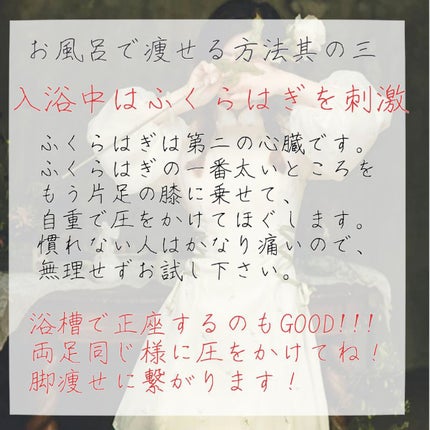 お風呂で痩せる方法其の三
入浴中はふくらはぎを刺激
ふくらはぎは第二の心臓です。
ふくらはぎの一番太いところを
もう片足の膝に乗せて、
自重で圧をかけてほぐします。
慣れない人はかなり痛いので、
無理せずお試し下さい。
浴槽で正座するのもGOOD!!!
両足同じ様に圧をかけてね！
脚痩せに繋がります！